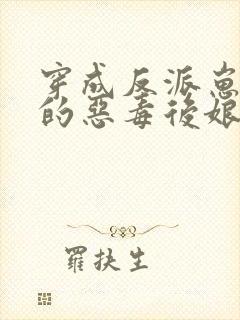 穿成反派崽
的惡毒後娘
羅扶生